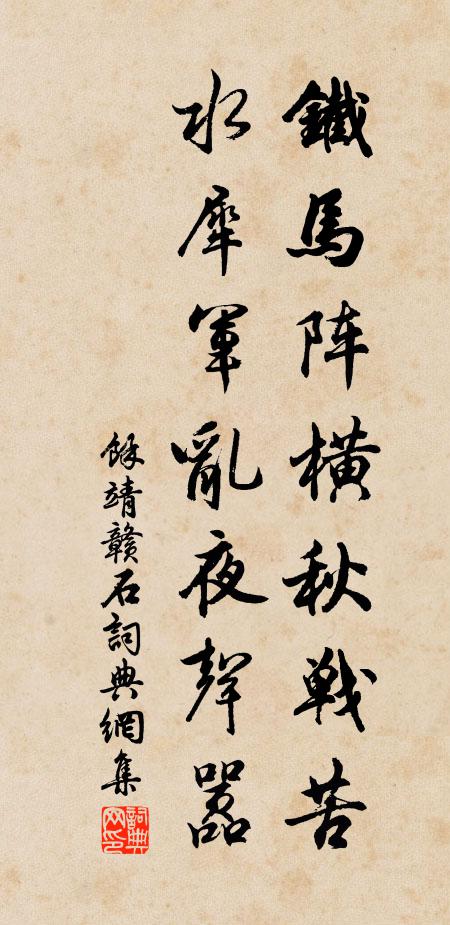 鐵馬阵橫秋戦苦
水犀軍亂夜聲囂
餘靖贛石詞典網集
詞典网印